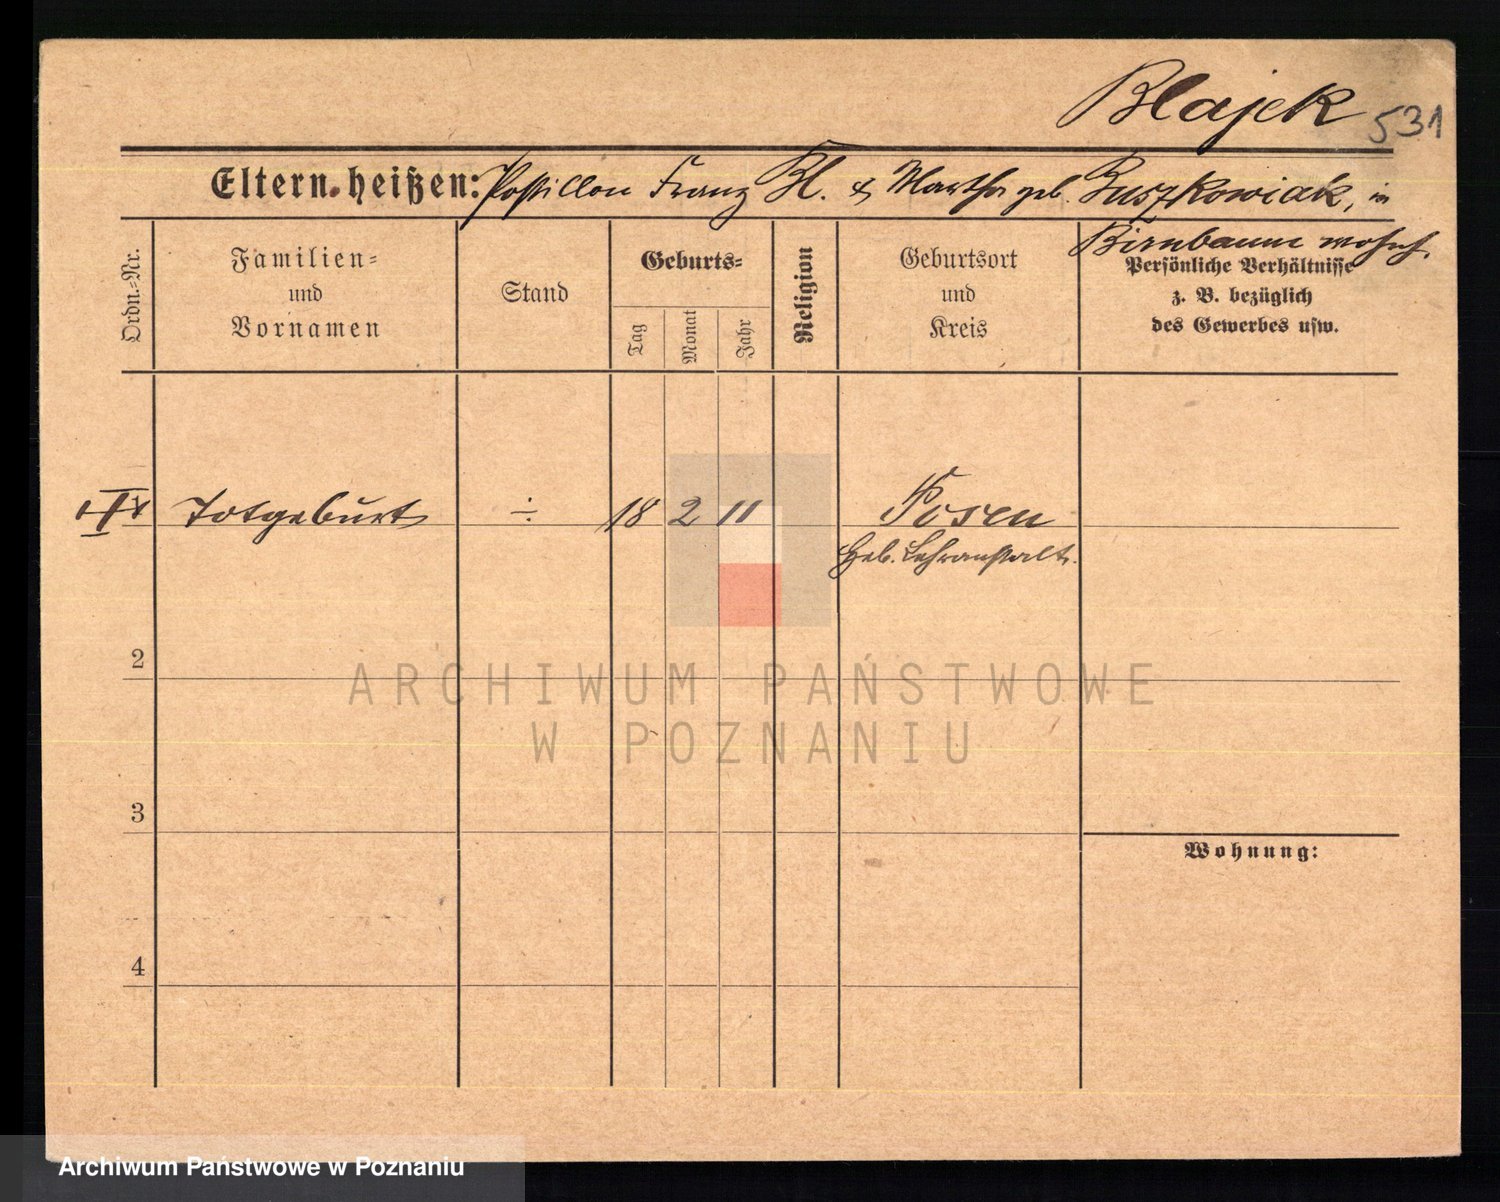 Blajek 531
Eltern heißen: Postillon Franz Bl. & Martha geb. Buszkowiak, in
Birnbaum wohnh.
Ordn.-Nr.
Familien-
und
Vornamen
Stand
Geburts-
Tag
Monat
Jahr
Religion
Geburtsort
und
Kreis
Persönliche Verhältnisse
z. B. bezüglich
des Gewerbes usw.
Totgeburt ÷ 18 2 11 Posen
Heb. Lehranstalt.
2
3
4
Wohnung:
ARCHIWUM PAŃSTWOWE
W POZNANIU
Archiwum Państwowe w Poznaniu